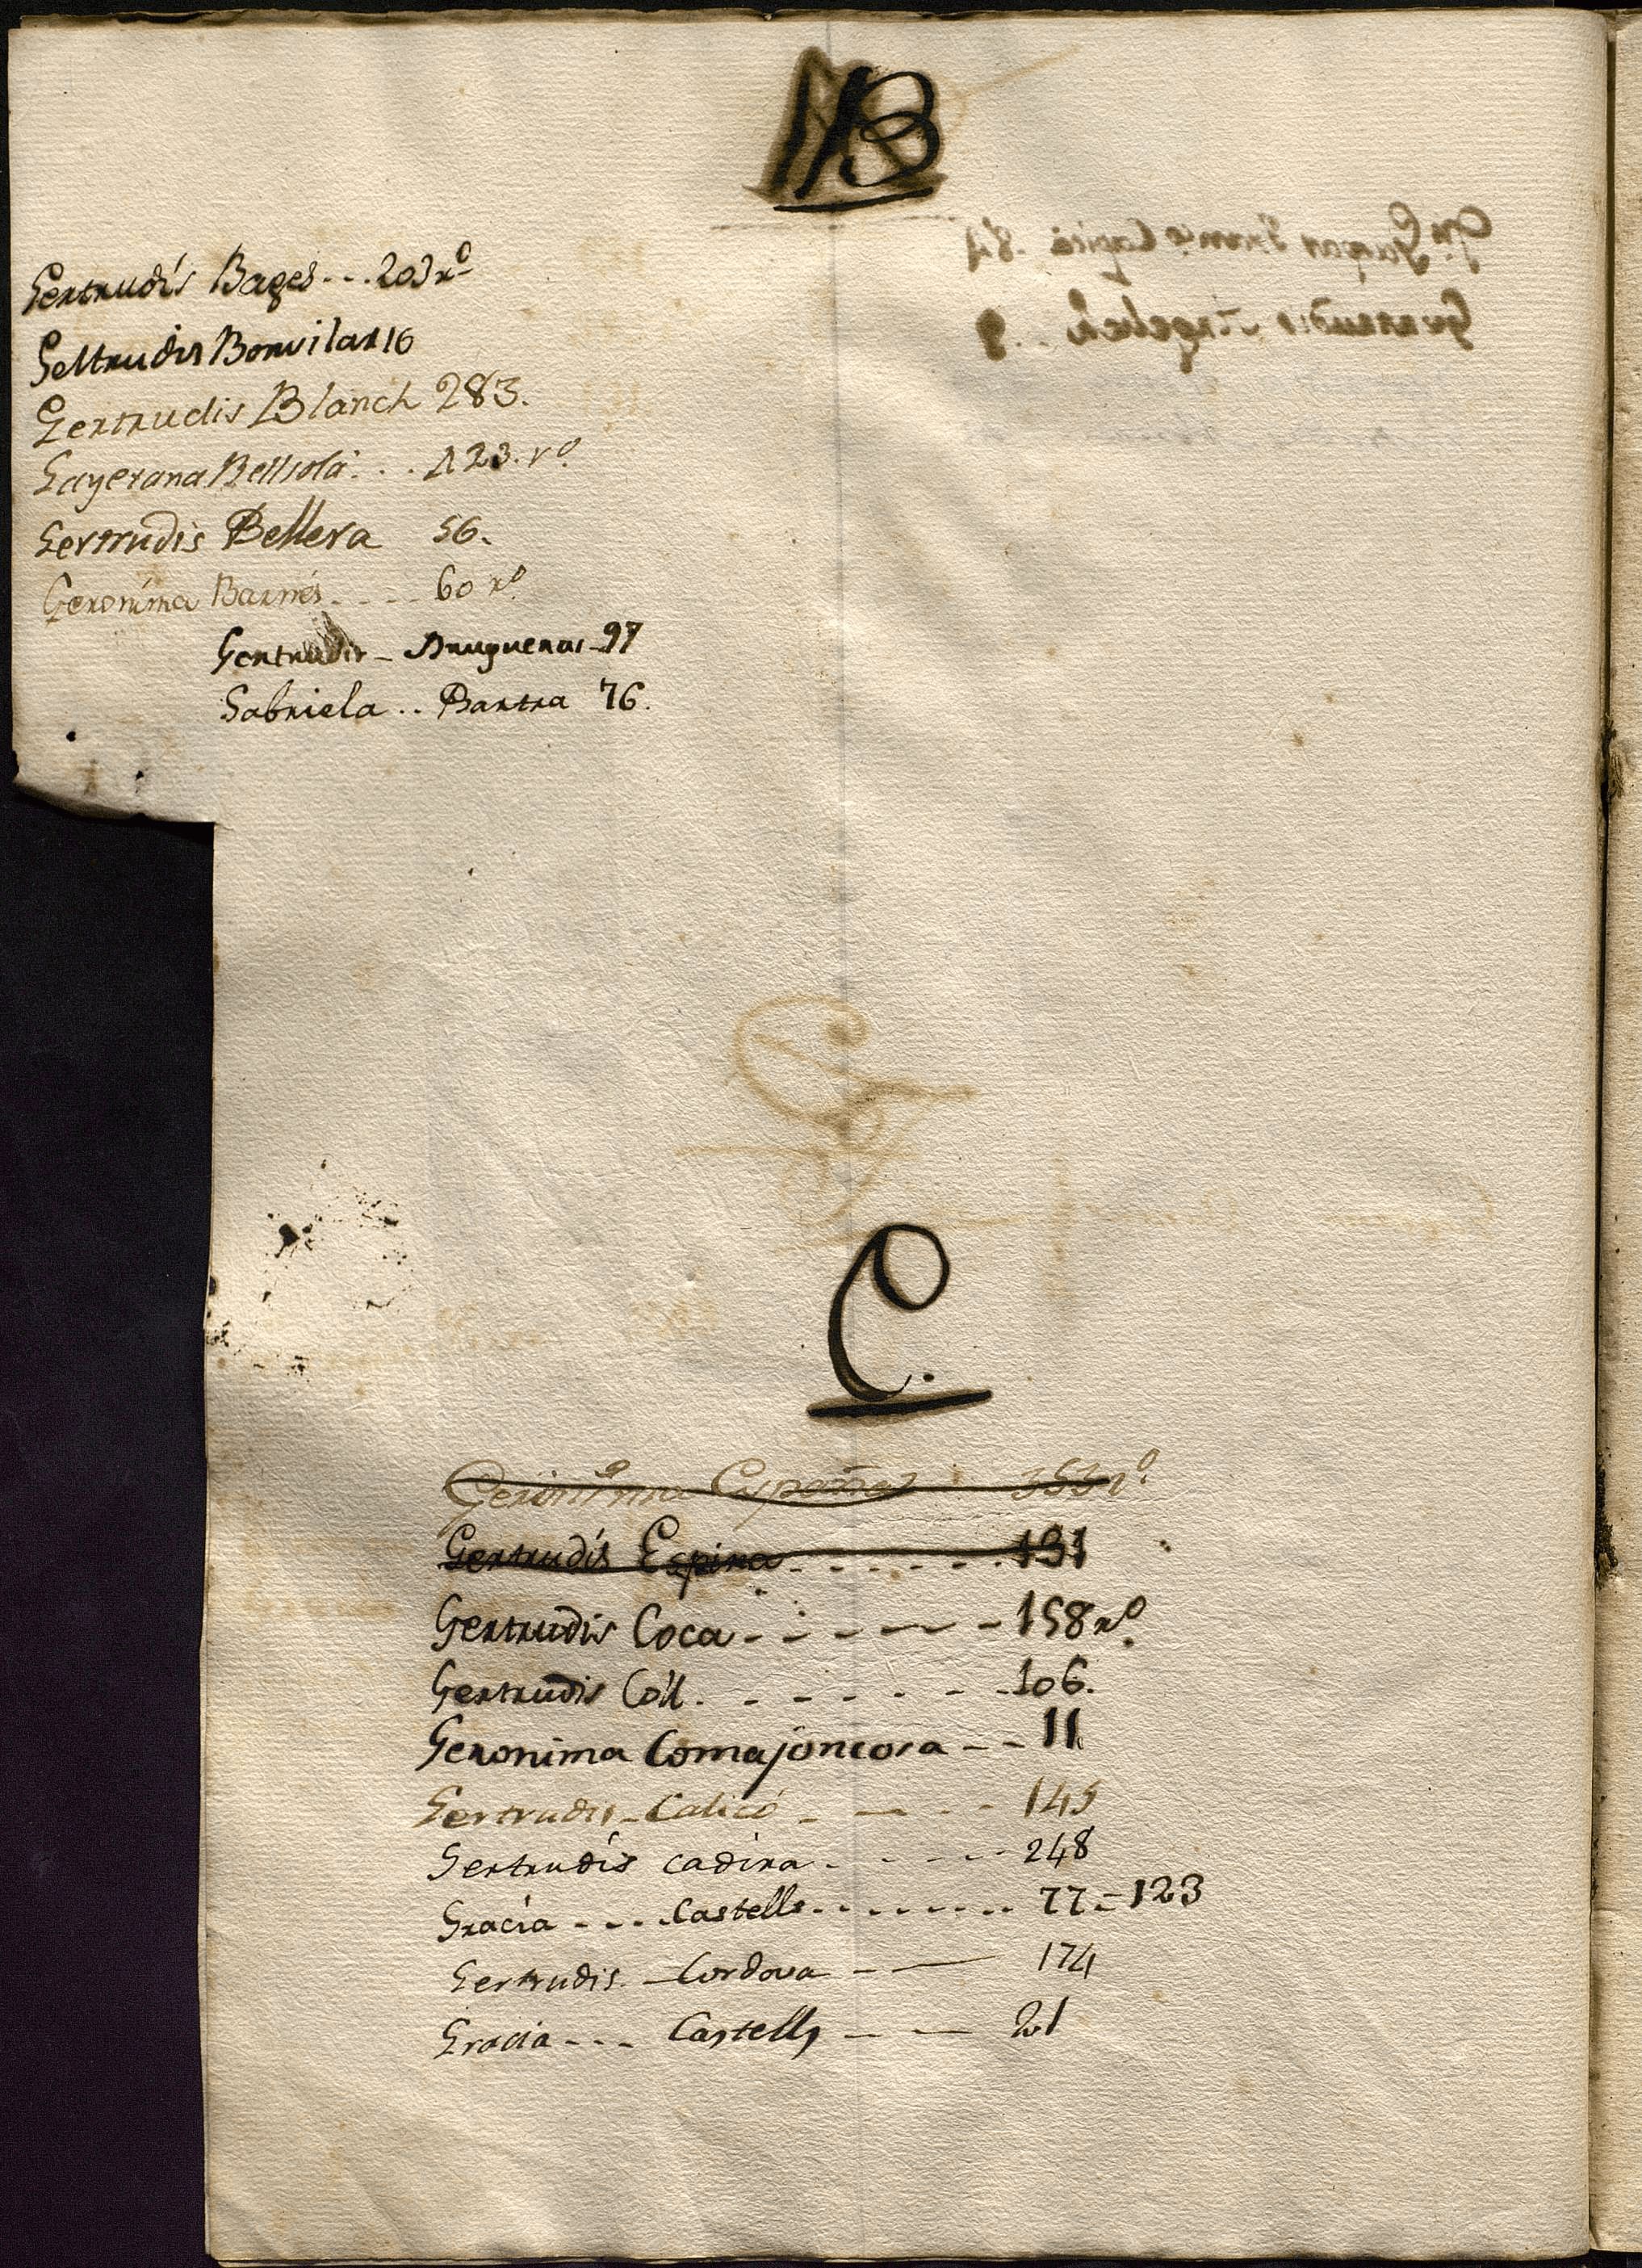 B
Gertrudis Bages - - . 203 rº
Geltrudis Bonvilar 16
Gertrudis Blanch 283.
Gayetana Bellsolá . . . 123. vº
Gertrudis Bellera 56.
Geronima Barnés . _ _ _ 60 rº
Gertrudis _ Brugueras _ 97
Gabriela . . Bartra 76.
C.
Geronima 353 rº
Gertrudis Espina - - - - - - 131
Gertrudis Coca - - - - - 158 rº
Gertrudis Coll . - - - - - 106.
Geronima Comajoncosa - - 11
Gertrudis _ Calicó _ - - - 145
Gertrudis Cadira . - - - - 248
Gracia - - . . Castells . . . . . . . . 77 - 123
Gertrudis _ Cordova - — 174
Gracia - - - Castells — — 21